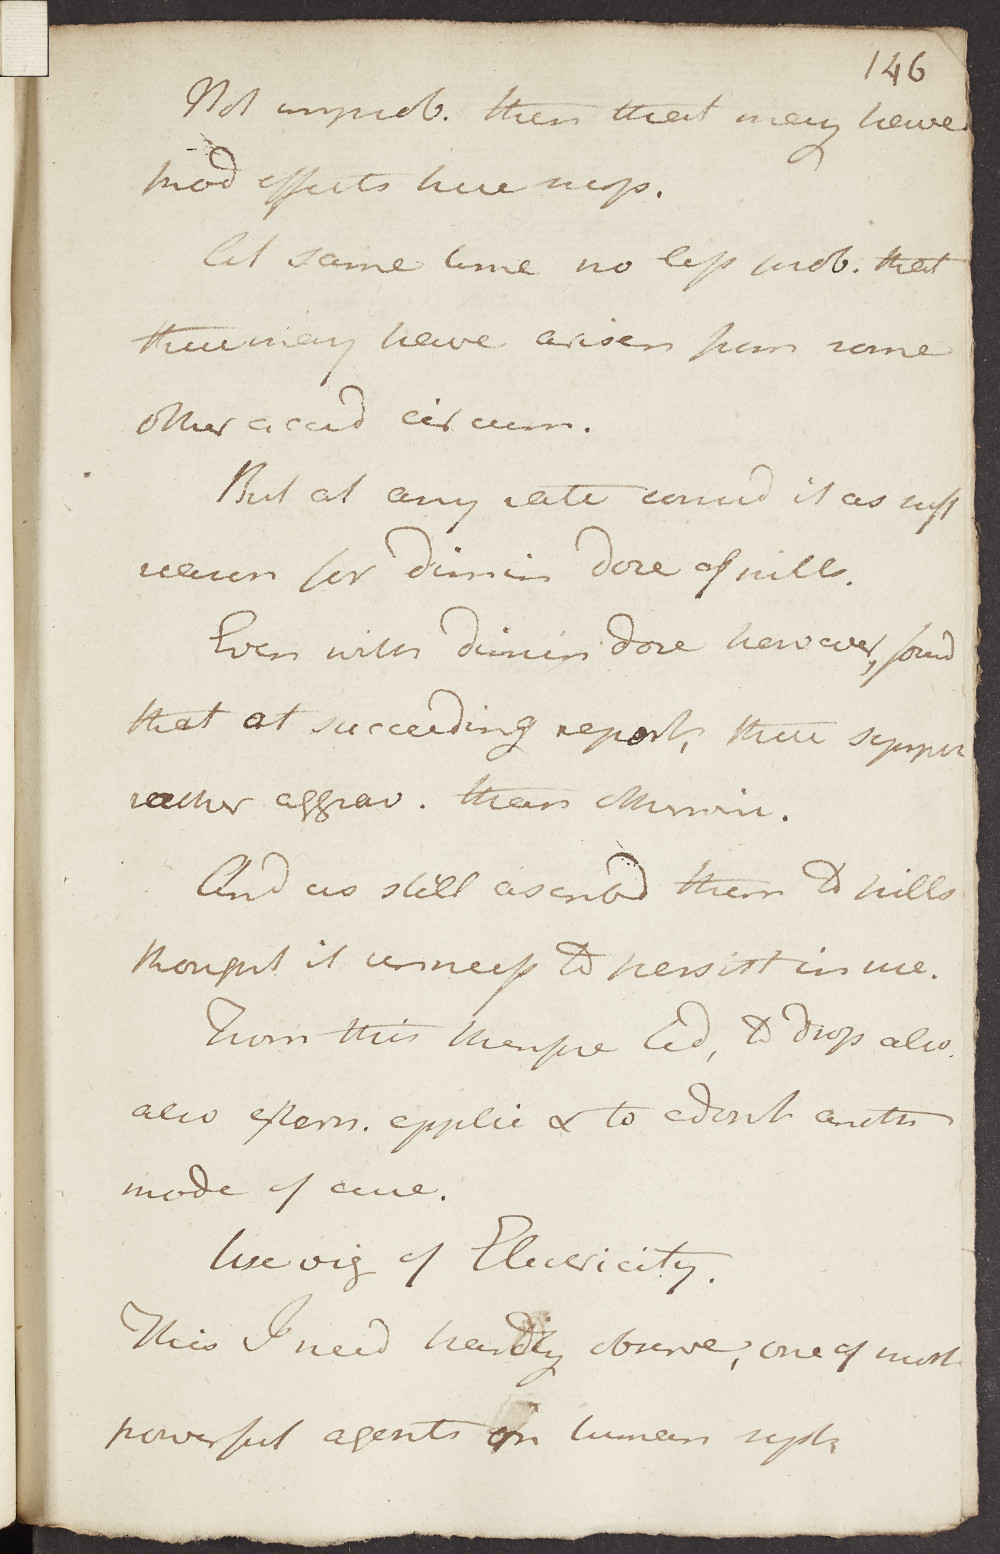 146
Not improb. then that may have
prod effects here resp.
At same time no less prob. that
these may have arisen from some
other accid circum.
But at any rate consid it as suff
reason for dimin dose of pills.
Even with dimin dose however, found
that at succeeding report, these sympt
rather aggrav. than otherwise.
And as still ascribd them to pills
thought it unness to persist in use.
From this therefore led, to drop also
also extern. applic & to adopt anoth
mode of cure.
Use vig of Electricity.
This I need hardly observe, one of most
powerful agents on human syst.